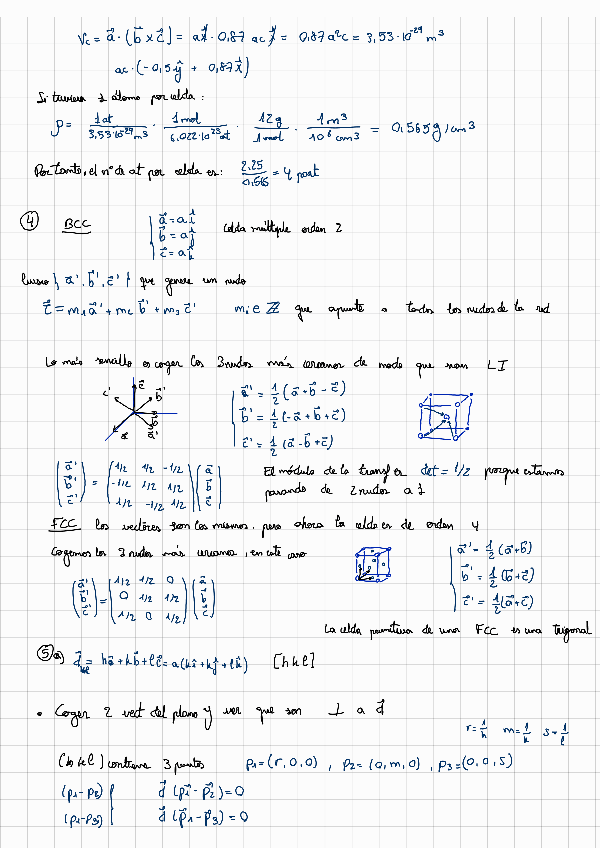 Vc = a⃗ · (b⃗ x c⃗) = a x̂ · 0,87 ac x̂ = 0,87 a²c = 3,53·10⁻²⁹ m³
ac·(-0,5 ŷ + 0,87 x̂)
Si tuviera 1 átomo por celda:
ρ = 1 at / 3,53·10⁻²⁹ m³ · 1 mol / 6,022·10²³ at · 12 g / 1 mol · 1 m³ / 10⁶ cm³ = 0,565 g/cm³
Por tanto, el nº de at por celda es: 2.25 / 0,565 = 4 part
④ BCC { a⃗ = a î celda múltiple orden 2
b⃗ = a ĵ
c⃗ = a k̂
Busco { a⃗', b⃗', c⃗' } que genere un nudo
t⃗ = m₁ a⃗' + m₂ b⃗' + m₃ c⃗' mᵢ ∈ ℤ que apunte a todos los nudos de la red
Lo más sencillo es coger los 3 nudos más cercanos de modo que sean LI
c' c⃗ b⃗' a⃗ a⃗'
{ a⃗' = 1/2 (a⃗ + b⃗ - c⃗)
b⃗' = 1/2 (-a⃗ + b⃗ + c⃗)
c⃗' = 1/2 (a⃗ - b⃗ + c⃗)
(a⃗' b⃗' c⃗') = (1/2 1/2 -1/2; -1/2 1/2 1/2; 1/2 -1/2 1/2) (a⃗ b⃗ c⃗) El módulo de la transf es det = 1/2 porque estamos
pasando de 2 nudos a 1
FCC los vectores son los mismos, pero ahora la celda es de orden 4
Cogemos los 3 nudos más cercanos, en este caso
{ a⃗' = 1/2 (a⃗+b⃗)
b⃗' = 1/2 (b⃗+c⃗)
c⃗' = 1/2 (a⃗+c⃗)
(a⃗' b⃗' c⃗') = (1/2 1/2 0; 0 1/2 1/2; 1/2 0 1/2) (a⃗ b⃗ c⃗)
La celda primitiva de una FCC es una trigonal
⑤ a) d⃗hkl = h a⃗ + k b⃗ + l c⃗ = a (h î + k ĵ + l k̂) [h k l]
• Coger 2 vect del plano y ver que son ⊥ a d⃗
r = 1/h m = 1/k s = 1/l
(h k l) contiene 3 puntos p₁ = (r, 0, 0) , p₂ = (0, m, 0) , p₃ = (0, 0, s)
(p₁-p₂) } d⃗ (p⃗₁ - p⃗₂) = 0
(p₁-p₃) d⃗ (p⃗₁ - p⃗₃) = 0